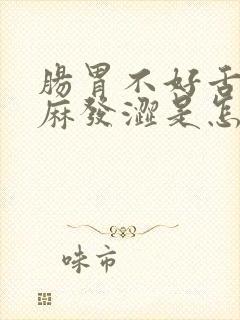 腸胃不好舌
麻發澀是怎
味市